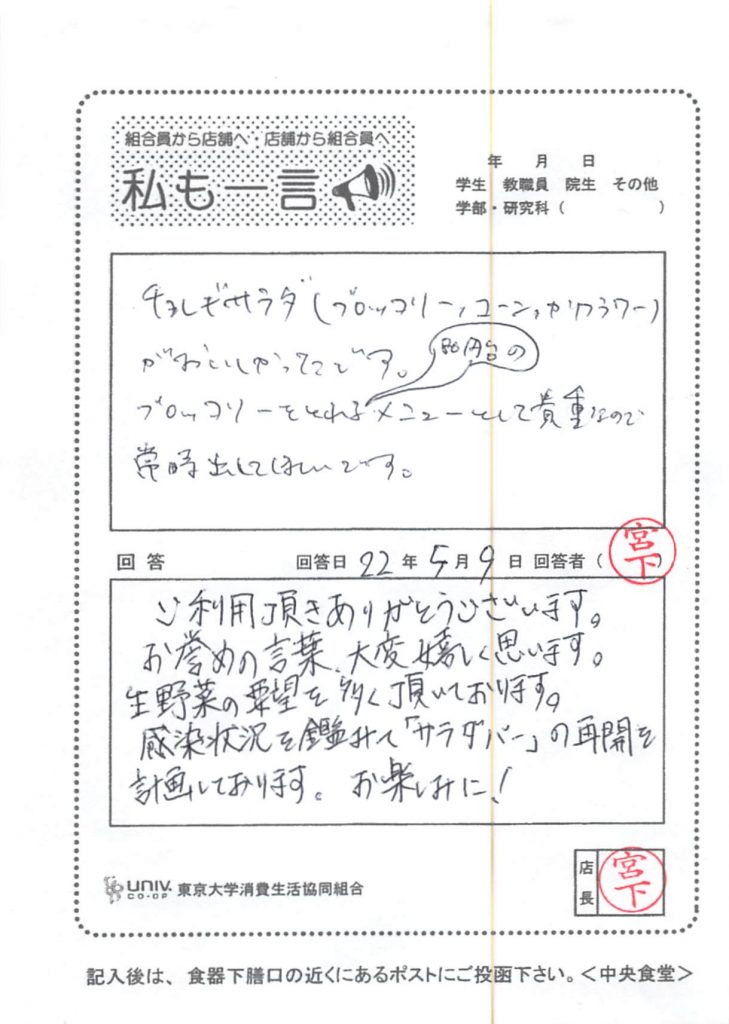 組合員から店舗へ・店舗から組合員へ
私も一言
年 月 日
学生 教職員 院生 その他
学部・研究科( )
チョレギサラダ(ブロッコリー、コーン、カリフラワー)
がおいしかったです。
80円台の
ブロッコリーをとれるメニューとして貴重なので
常時出してほしいです。
回答 回答日 22年 5月 9日 回答者(宮下)
ご利用頂きありがとうございます。
お誉めの言葉、大変嬉しく思います。
生野菜の要望を多く頂いております。
感染状況を鑑みて「サラダバー」の再開を
計画しております。お楽しみに!
UNIV. CO-OP 東京大学消費生活協同組合
店長 宮下
記入後は、食器下膳口の近くにあるポストにご投函下さい。<中央食堂>